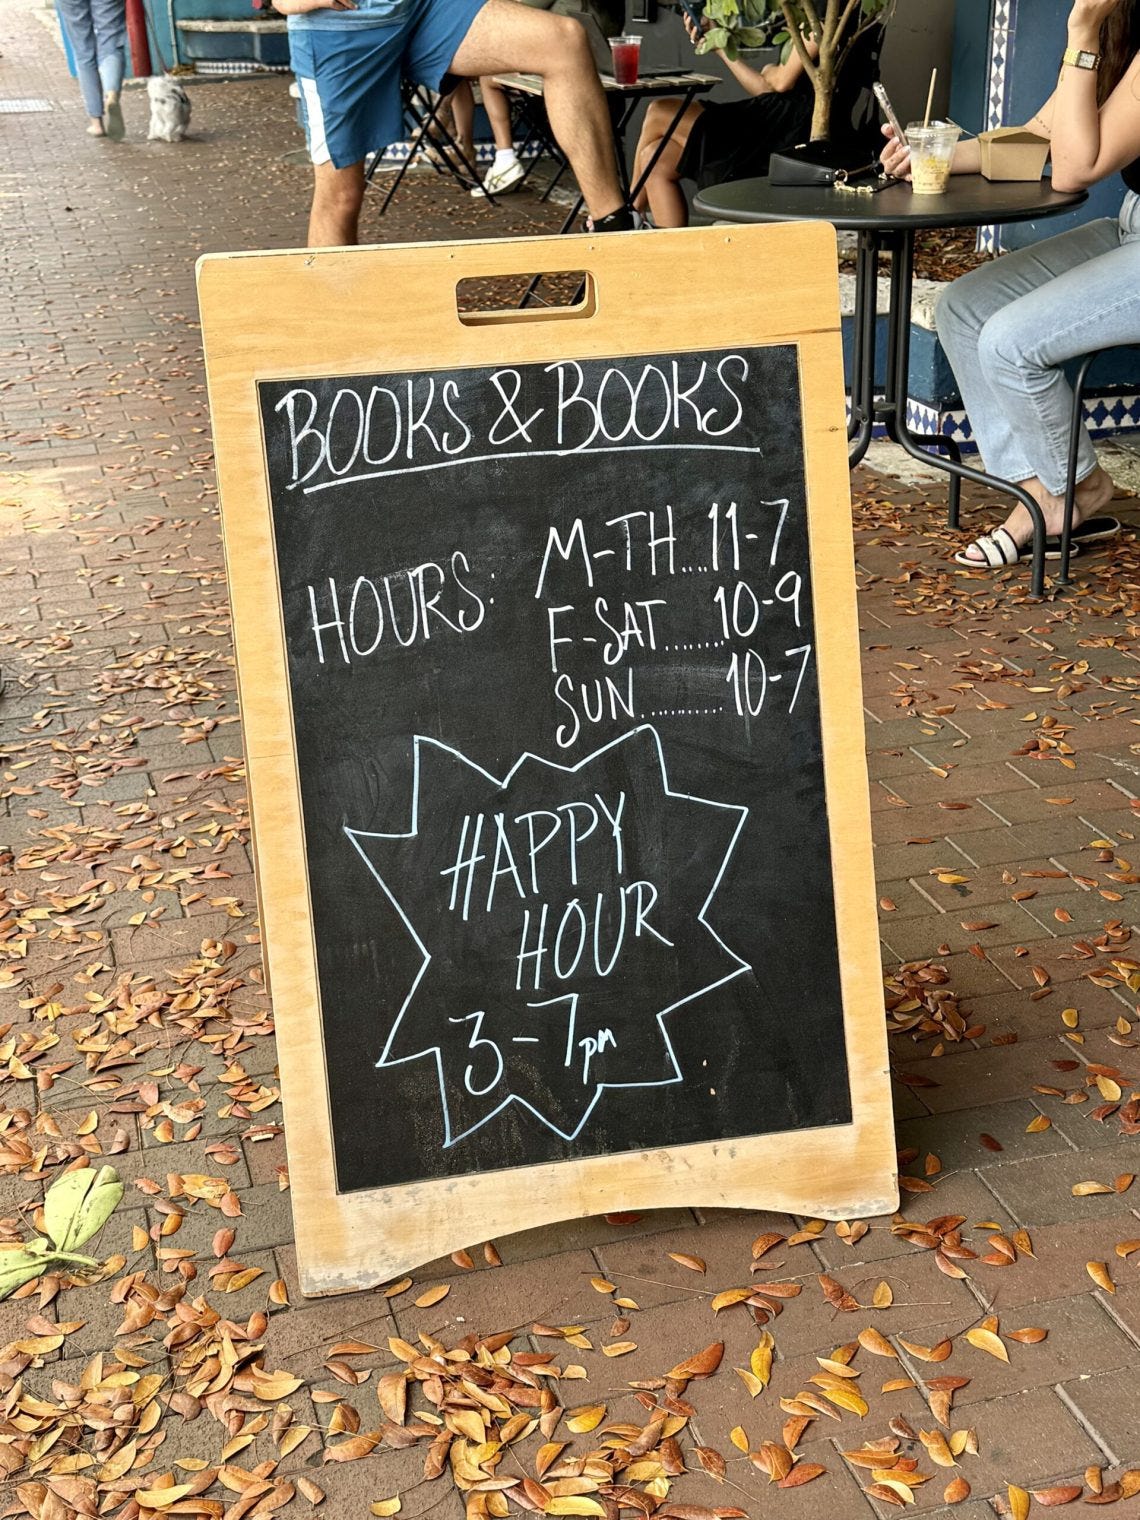 BOOKS & BOOKS
HOURS:
M-TH....11-7
F-SAT........10-9
SUN..........10-7
HAPPY
HOUR
3-7pm